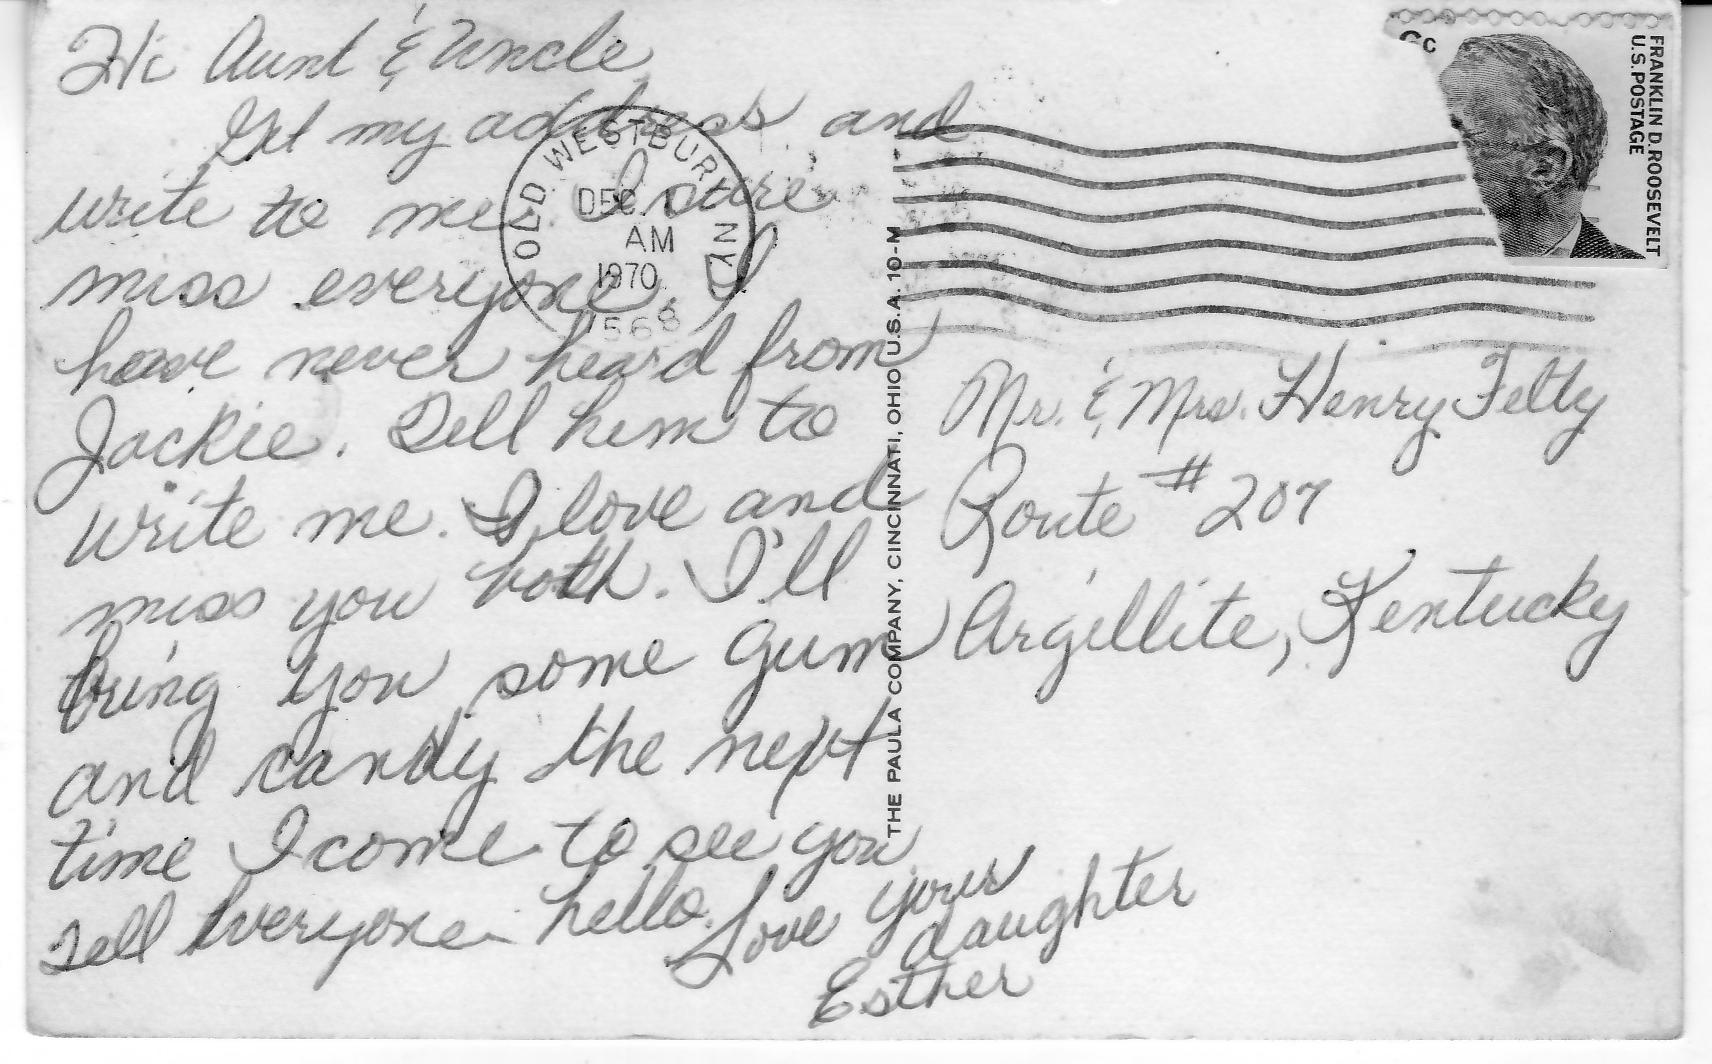 Hi Aunt & Uncle,
Get my address and
write to me. I sure
miss everyone. I
have never heard from
Jackie. Tell him to
write me. I love and
miss you both. I'll
bring you some gum
and candy the next
time I come to see you
Tell everyone hello.
Love your
daughter
Esther
OLD WESTBURY NY
DEC
AM
1970
1568
THE PAULA COMPANY, CINCINNATI, OHIO U.S.A. 10-M
6c
FRANKLIN D. ROOSEVELT
U.S. POSTAGE
Mr. & Mrs. Henry Felty
Route # 207
Argillite, Kentucky